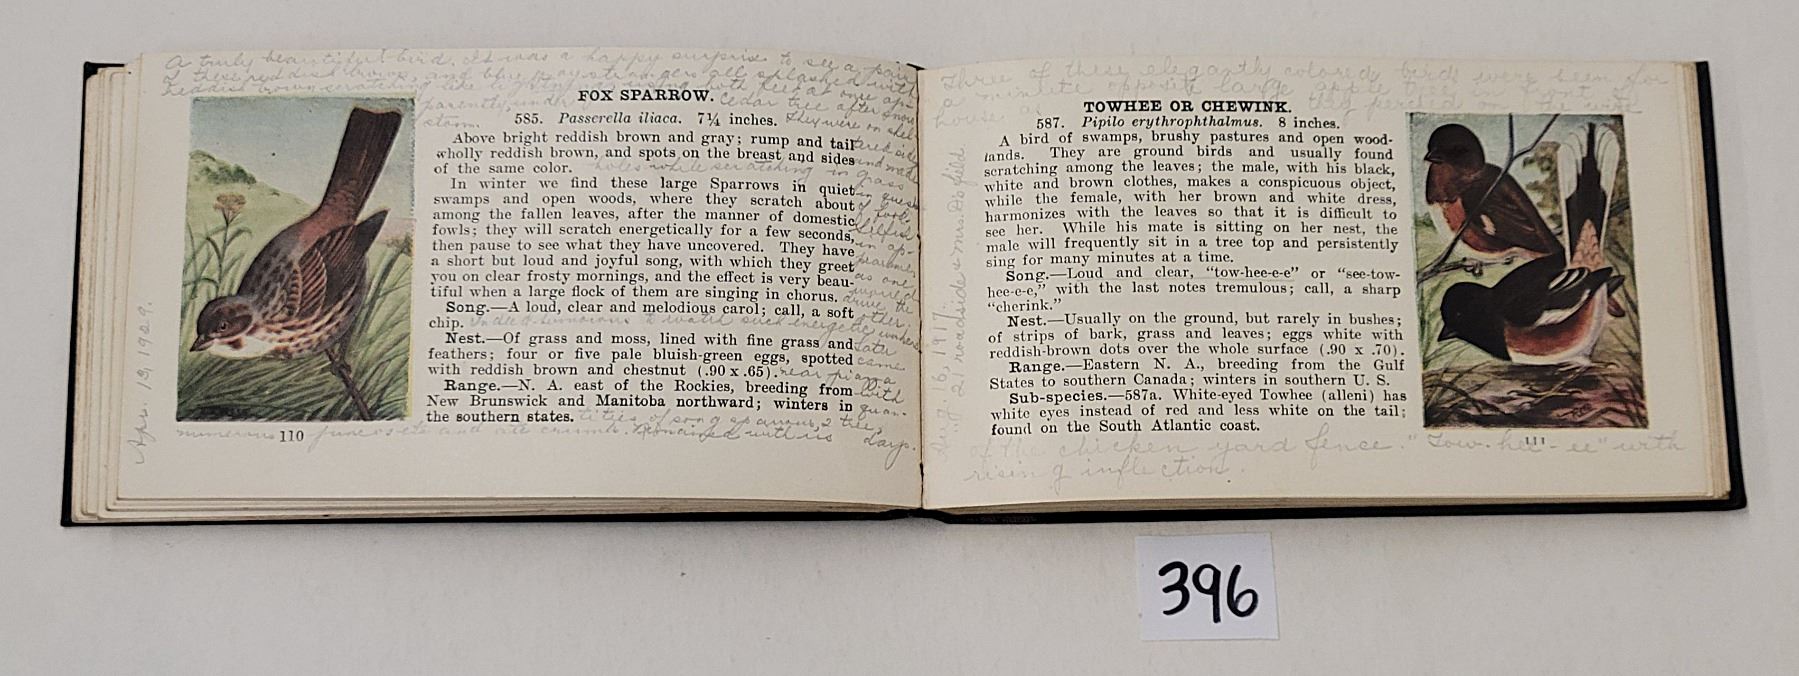 A truly beautiful bird. It was a happy surprise to see a pair
of these reddish brown, and blue gray strangers all splashed with
reddish brown scratching like lightning with feet at once ap-
parently, under cedar tree after snow
storm. They were on shel-
tered side
and made
holes while scratching in grass
in quest
of food.
FOX SPARROW.
585. Passerella iliaca. 7¼ inches.
Above bright reddish brown and gray; rump and tail
wholly reddish brown, and spots on the breast and sides
of the same color.
In winter we find these large Sparrows in quiet
swamps and open woods, where they scratch about
among the fallen leaves, after the manner of domestic
fowls; they will scratch energetically for a few seconds,
then pause to see what they have uncovered. They have
a short but loud and joyful song, with which they greet
you on clear frosty mornings, and the effect is very beau-
tiful when a large flock of them are singing in chorus.
Song.—A loud, clear and melodious carol; call, a soft
chip.
Nest.—Of grass and moss, lined with fine grass and
feathers; four or five pale bluish-green eggs, spotted
with reddish brown and chestnut (.90 x .65).
Range.—N. A. east of the Rockies, breeding from
New Brunswick and Manitoba northward; winters in
the southern states.
as one
would
drive the
other.
to watch such energetic workers
Later
came
near piazza
with
quan-
tities of song sparrows, 2 tree,
numerous juncos etc and ate crumbs. Remained with us
days.
Apr. 13, 1929.
110
Three of these elegantly colored birds were seen for
a minute opposite large apple tree in front of
house as they perched on the wire
TOWHEE OR CHEWINK.
587. Pipilo erythrophthalmus. 8 inches.
A bird of swamps, brushy pastures and open wood-
lands. They are ground birds and usually found
scratching among the leaves; the male, with his black,
white and brown clothes, makes a conspicuous object,
while the female, with her brown and white dress,
harmonizes with the leaves so that it is difficult to
see her. While his mate is sitting on her nest, the
male will frequently sit in a tree top and persistently
sing for many minutes at a time.
Song.—Loud and clear, "tow-hee-e-e" or "see-tow-
hee-e-e," with the last notes tremulous; call, a sharp
"cherink."
Nest.—Usually on the ground, but rarely in bushes;
of strips of bark, grass and leaves; eggs white with
reddish-brown dots over the whole surface (.90 x .70).
Range.—Eastern N. A., breeding from the Gulf
States to southern Canada; winters in southern U. S.
Sub-species.—587a. White-eyed Towhee (alleni) has
white eyes instead of red and less white on the tail;
found on the South Atlantic coast.
of the chicken yard fence. "Tow-hee-ee" with
rising inflection.
Aug. 6, 1917.
21 roadside & Mrs.
111
396